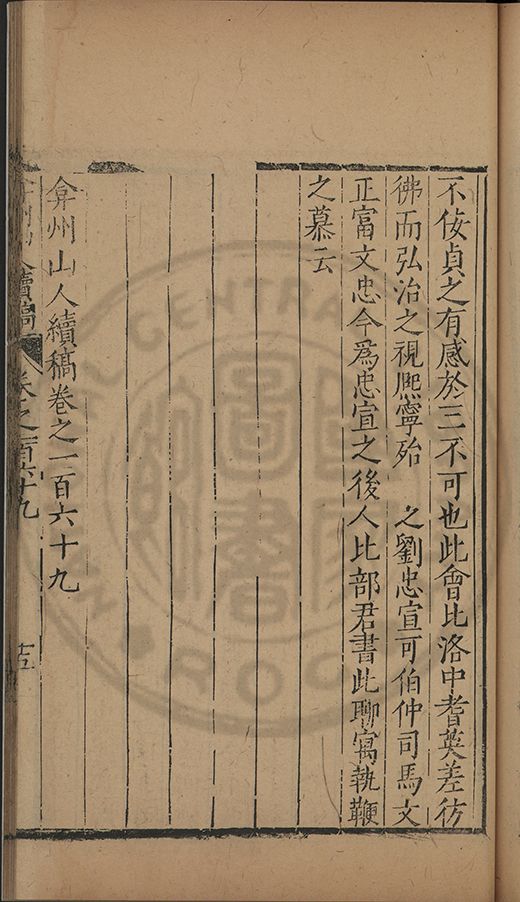 不佞貞之有感於三不可也此會比洛中耆英差彷
彿而弘治之視熈寧殆　之劉忠宣可伯仲司馬文
正富文忠今爲忠宣之後人比部君書此聊寓執鞭
之慕云
弇州山人續稿卷之一百六十九
弇州山人續稿　卷之一百六十九　十五